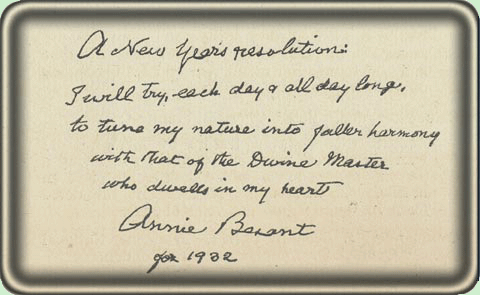 A New Year's resolution:
I will try, each day & all day long,
to tune my nature into fuller harmony
with that of the Divine Master
who dwells in my heart
Annie Besant
for 1932